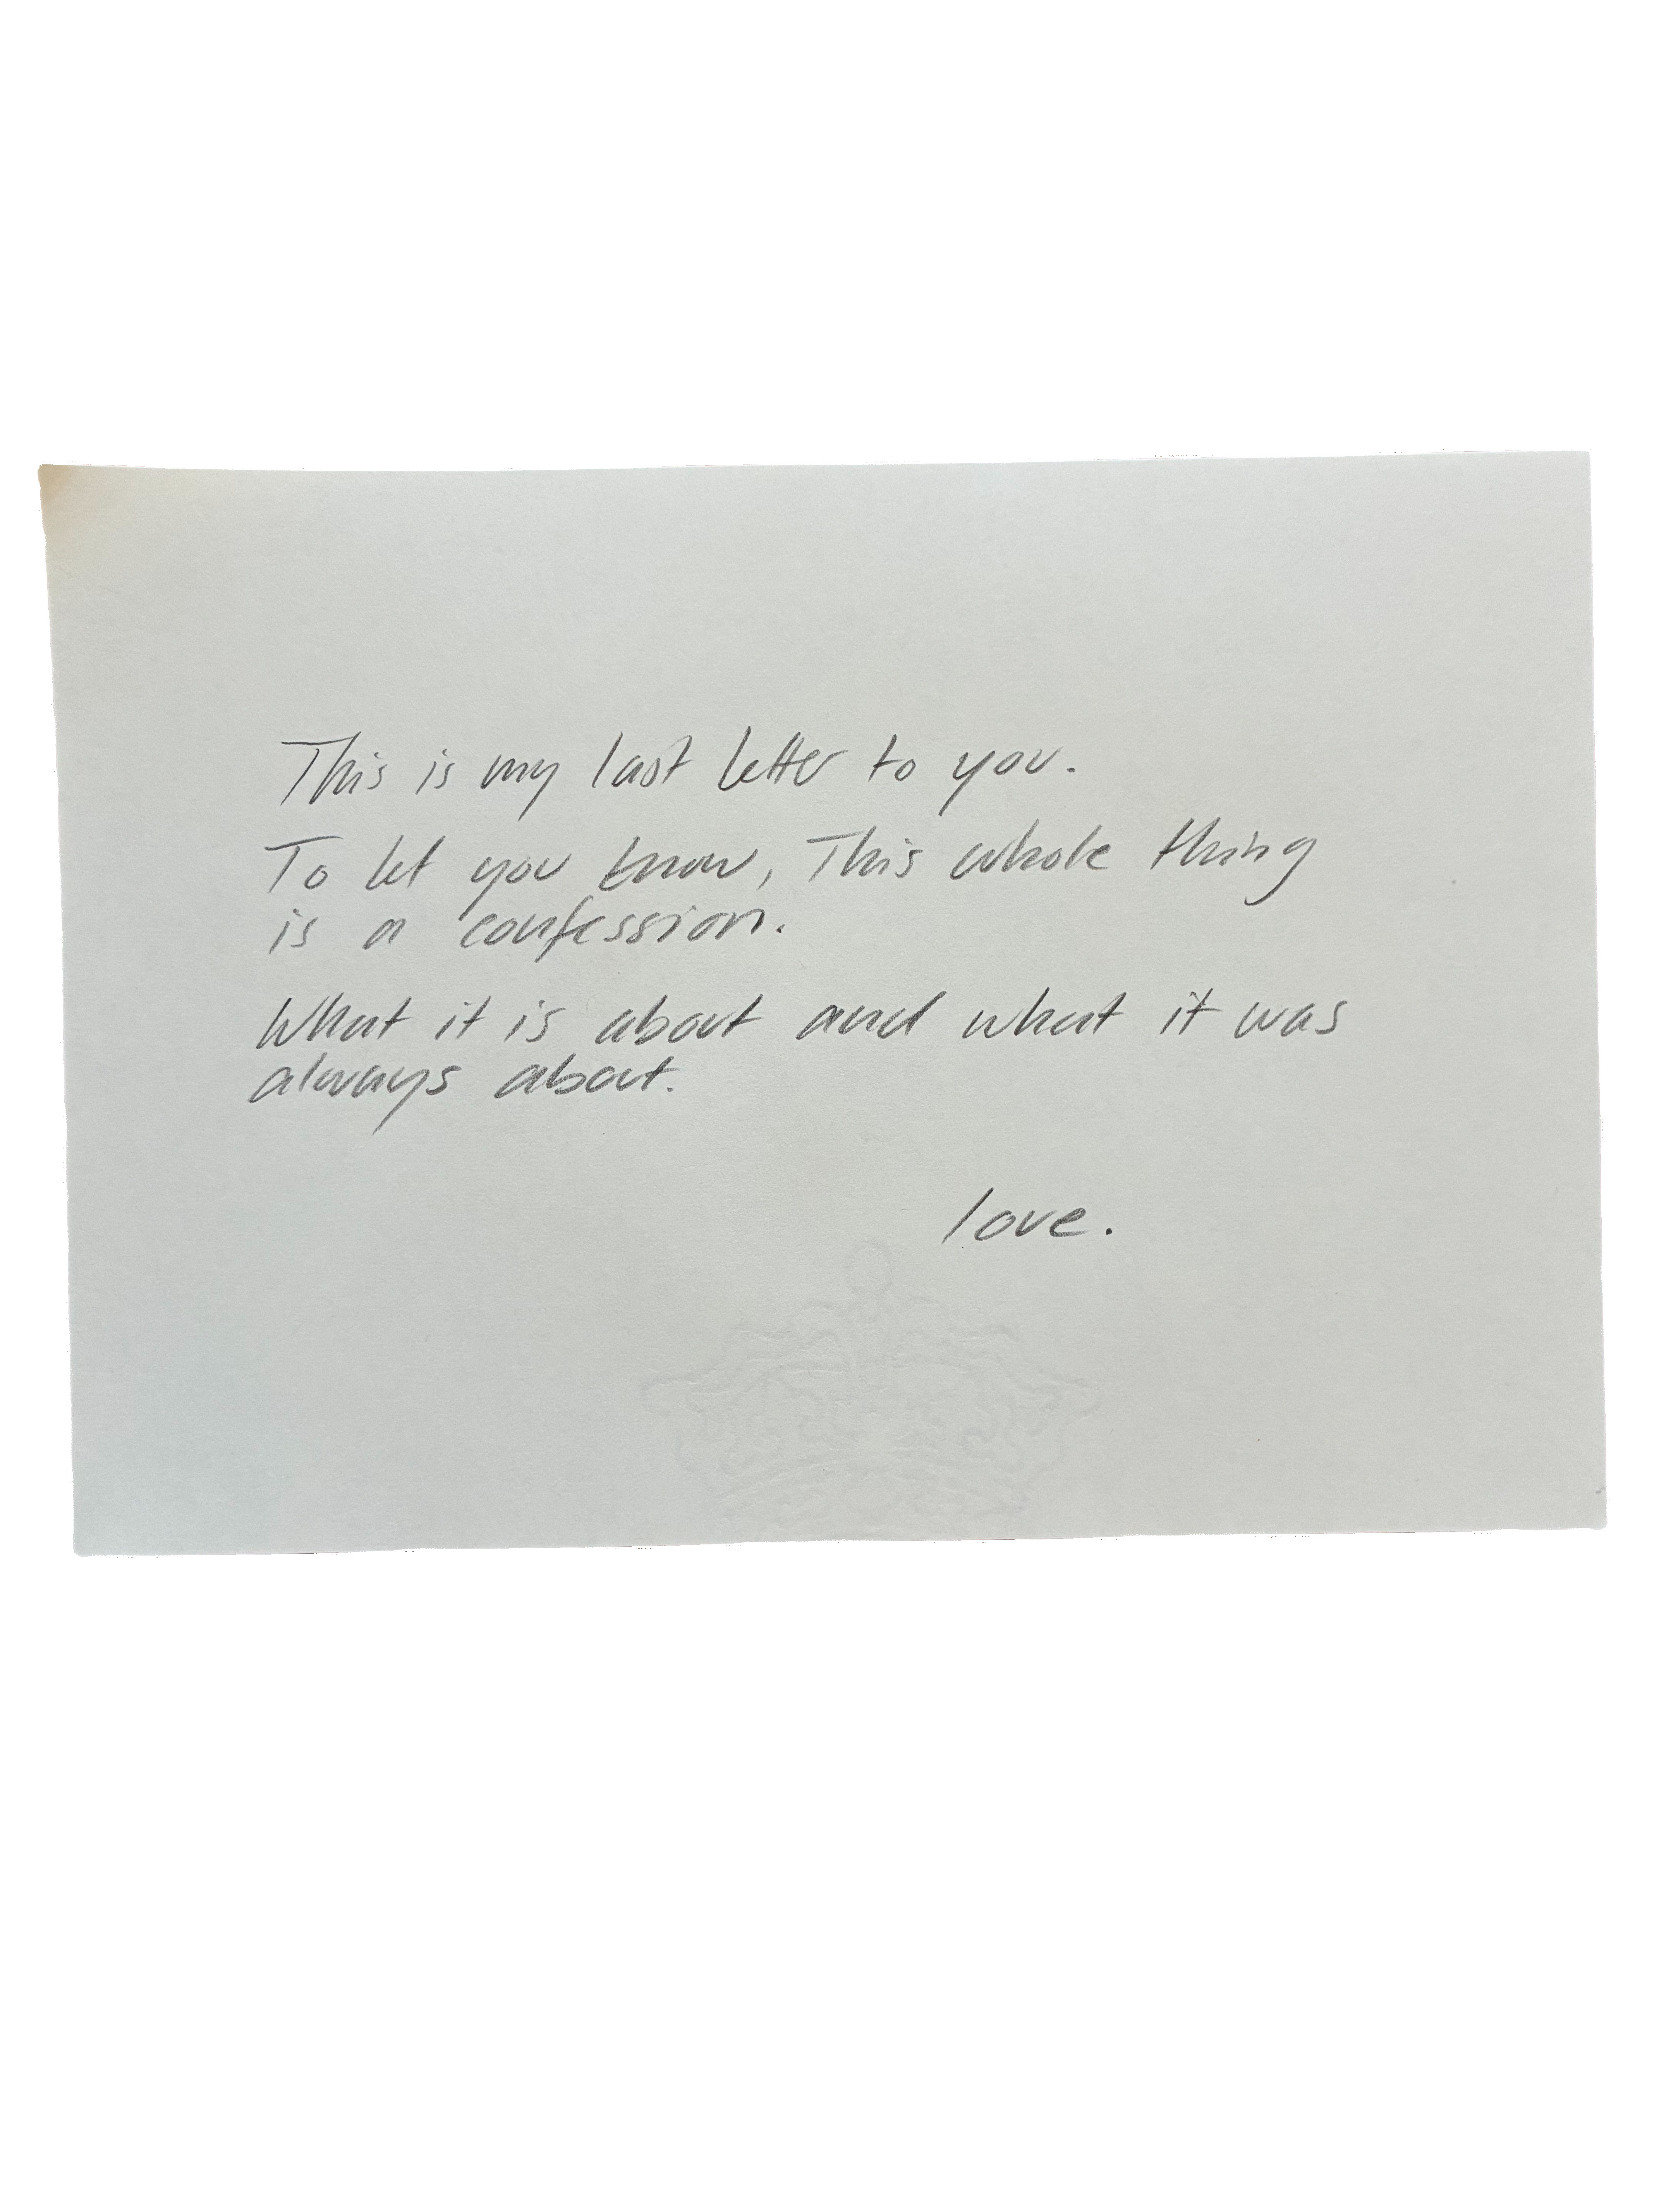 This is my last letter to you.
To let you know, This whole thing
is a confession.
What it is about and what it was
always about.
love.